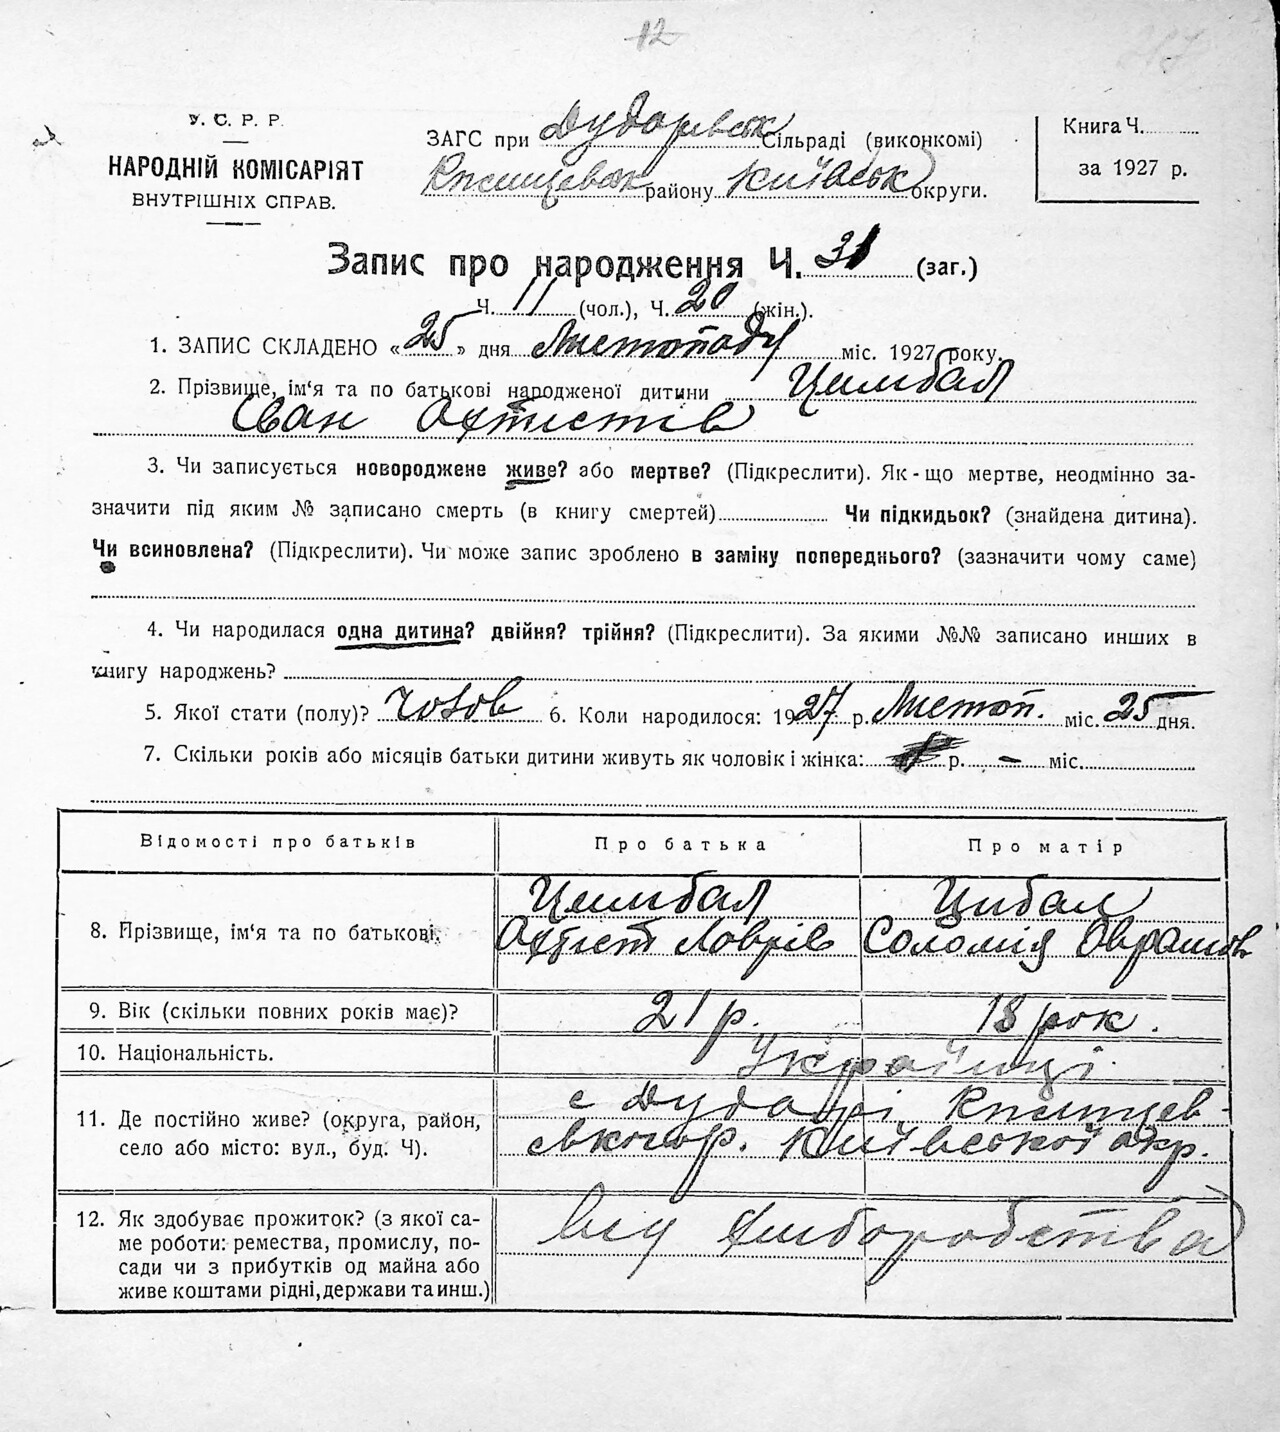 12
У. С. Р. Р.
НАРОДНІЙ КОМІСАРІЯТ
ВНУТРІШНІХ СПРАВ.
ЗАГС при Дударевськ Сільраді (виконкомі)
Ржищевськ району Київськ округи.
Книга Ч.
за 1927 р.
Запис про народження Ч. 31 (заг.)
Ч. 11 (чол.), Ч. 20 (жін.).
1. ЗАПИС СКЛАДЕНО «25» дня Листопаду міс. 1927 року.
2. Прізвище, ім‘я та по батькові народженої дитини Цимбал
Іван Охтистів
3. Чи записується новороджене живе? або мертве? (Підкреслити). Як-що мертве, неодмінно за-
значити під яким № записано смерть (в книгу смертей) Чи підкидьок? (знайдена дитина).
Чи всиновлена? (Підкреслити). Чи може запис зроблено в заміну попереднього? (зазначити чому саме)
4. Чи народилася одна дитина? двійня? трійня? (Підкреслити). За якими №№ записано инших в
книгу народжень?
5. Якої стати (полу)? Чолов 6. Коли народилося: 1927 р. Листоп. міс. 25 дня.
7. Скільки років або місяців батьки дитини живуть як чоловік і жінка: р. – міс.
Відомості про батьків Про батька Про матір
8. Прізвище, ім‘я та по батькові.
Цимбал
Охтист Лаврів
Цибал
Соломія Оврамов
9. Вік (скільки повних років має)? 21 р. 18 рок.
10. Національність. Українці.
11. Де постійно живе? (округа, район,
село або місто: вул., буд. Ч).
с Дударі Ржищев-
ськогор. Київської окр.
12. Як здобуває прожиток? (з якої са-
ме роботи: ремества, промислу, по-
сади чи з прибутків од майна або
живе коштами рідні, держави та инш.)
від хліборобства